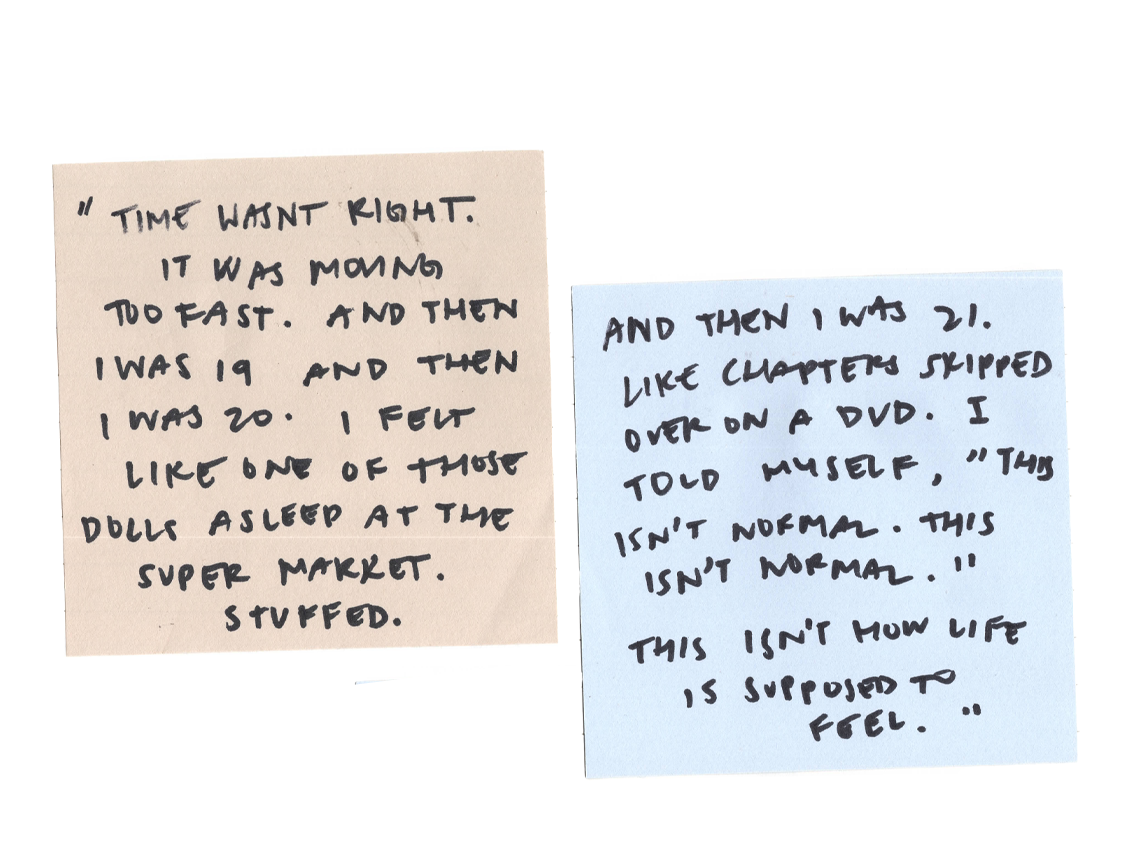 " TIME WASNT RIGHT.
IT WAS MOVING
TOO FAST. AND THEN
I WAS 19 AND THEN
I WAS 20. I FELT
LIKE ONE OF THOSE
DOLLS ASLEEP AT THE
SUPER MARKET.
STUFFED.
AND THEN I WAS 21.
LIKE CHAPTERS SKIPPED
OVER ON A DVD. I
TOLD MYSELF, "THIS
ISN'T NORMAL. THIS
ISN'T NORMAL."
THIS ISN'T HOW LIFE
IS SUPPOSED TO
FEEL. "